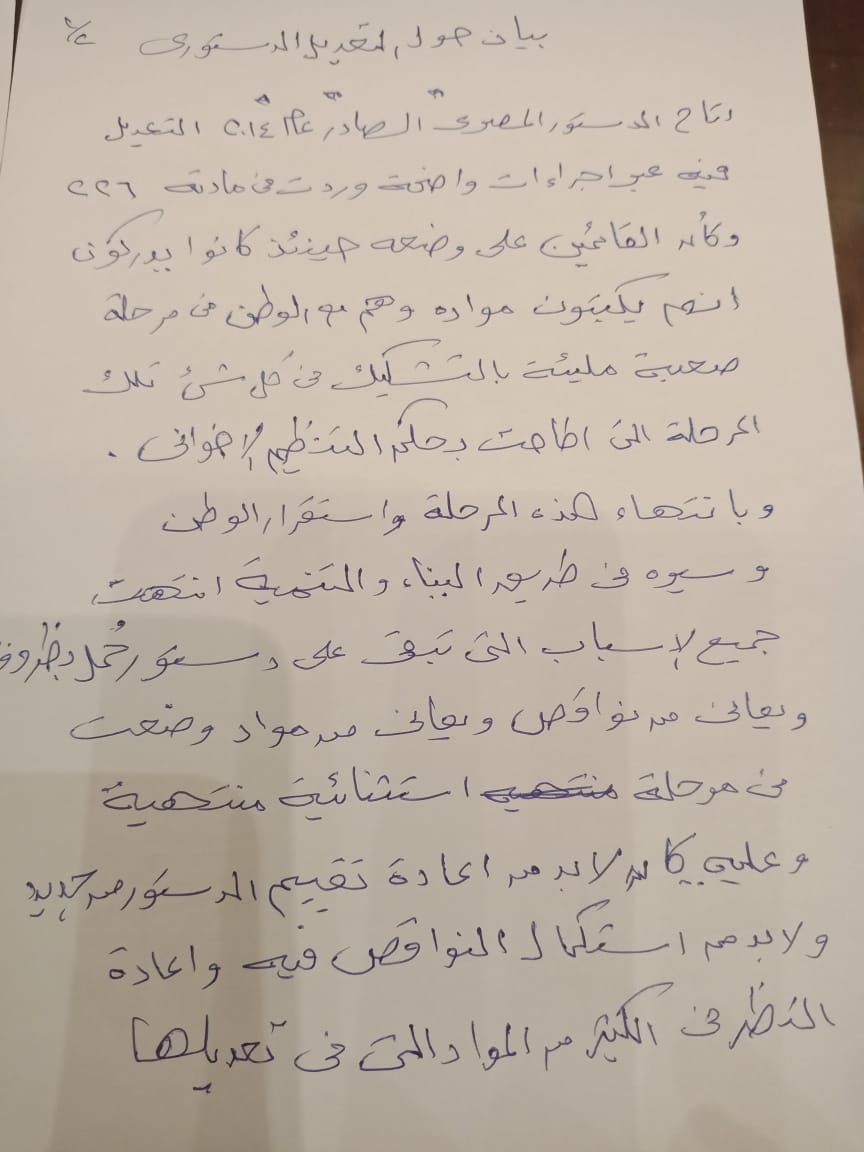 بيان حول التعديل الدستورى
اتاح الدستور المصرى الصادر عام ٢٠١٤ التعديل
فيه عبر اجراءات واضحة وردت فى مادته ٢٢٦
وكأن القائمين على وضعه حينئذ كانوا يدركون
انهم يكتبون مواده وهم مع الوطن فى مرحلة
صعبة مليئة بالتشكيك فى كل شئ تلك
المرحلة التى اطاحت بحكم التنظيم الإخوانى .
وبانتهاء هذه المرحلة واستقرار الوطن
وسيره فى طريق البناء والتنمية انتهت
جميع الاسباب التى تبقى على دستور حُمل بظروف
ويعانى من نواقص ويعانى من مواد وضعت
فى مرحلة استثنائية منتهية
وعليه كان لابد من اعادة تقييم الدستور من جديد
ولابد من استكمال النواقص فيه واعادة
النظر فى الكثير من المواد التى فى تعديلها